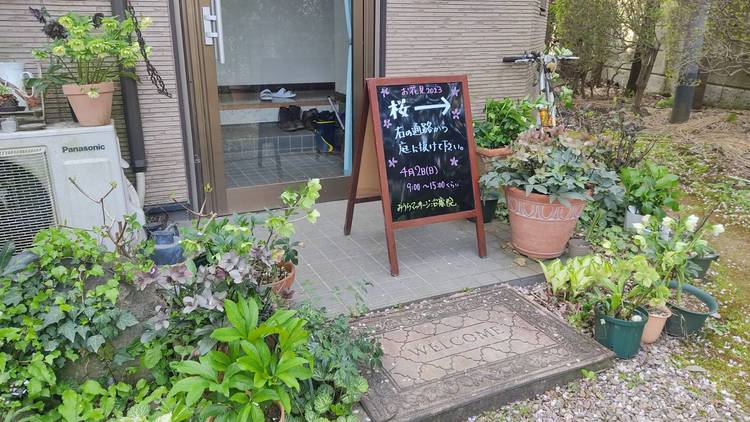 Panasonic
お花見2023
桜→
右の通路から
庭に抜けて下さい。
4月2日(日)
9:00〜15:00くらい
みうらマッサージ治療院
WELCOME